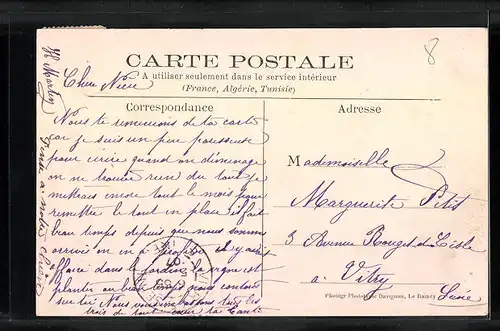 CARTE POSTALE
A utiliser seulement dans le service intérieur
(France, Algérie, Tunisie)
8
Correspondance
Adresse
Chère Nièce
Nous te remercions de ta carte
car je suis un peu paresseuse
pour écrire quand on déménage
on ne trouve rien du tout je
mettrais encore tout le mois pour
remettre le tout en place il fait
beau temps depuis que nous sommes
arrivés
il y avait
faire dans le jardin la vigne est
plantée au
nous comptons
sur toi Nous vous embrassons tous les
trois de tout cœur ta Tante
Mademoiselle
Marguerite Petit
3 Avenue Rouget de Lisle
à Vitry
Seine
Phototypie Daveynon, Le Raincy